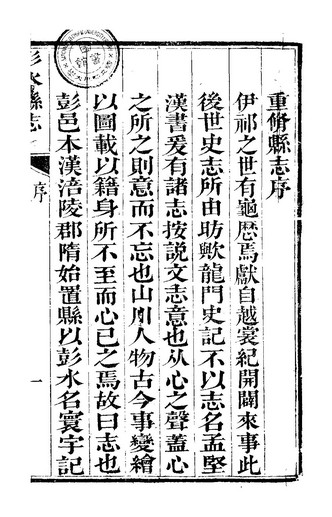 重脩縣志序
伊祁之世有龜厯焉獻自越裳紀開闢來事此
後世史志所由昉歟龍門史記不以志名孟堅
漢書爰有諸志按說文志意也从心之聲蓋心
之所之則意而不忘也山川人物古今事變繪
以圖載以籍身所不至而心已之焉故曰志也
彭邑本漢涪陵郡隋始置縣以彭水名寰宇記
彭水縣志
序
一